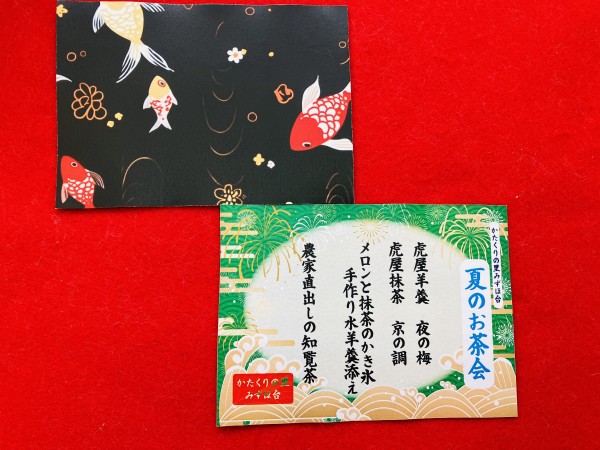 かたくりの里みずほ台
夏のお茶会
虎屋羊羹 夜の梅
虎屋抹茶 京の調
メロンと抹茶のかき氷
手作り水羊羹添え
農家直出しの知覧茶
かたくりの里
みずほ台